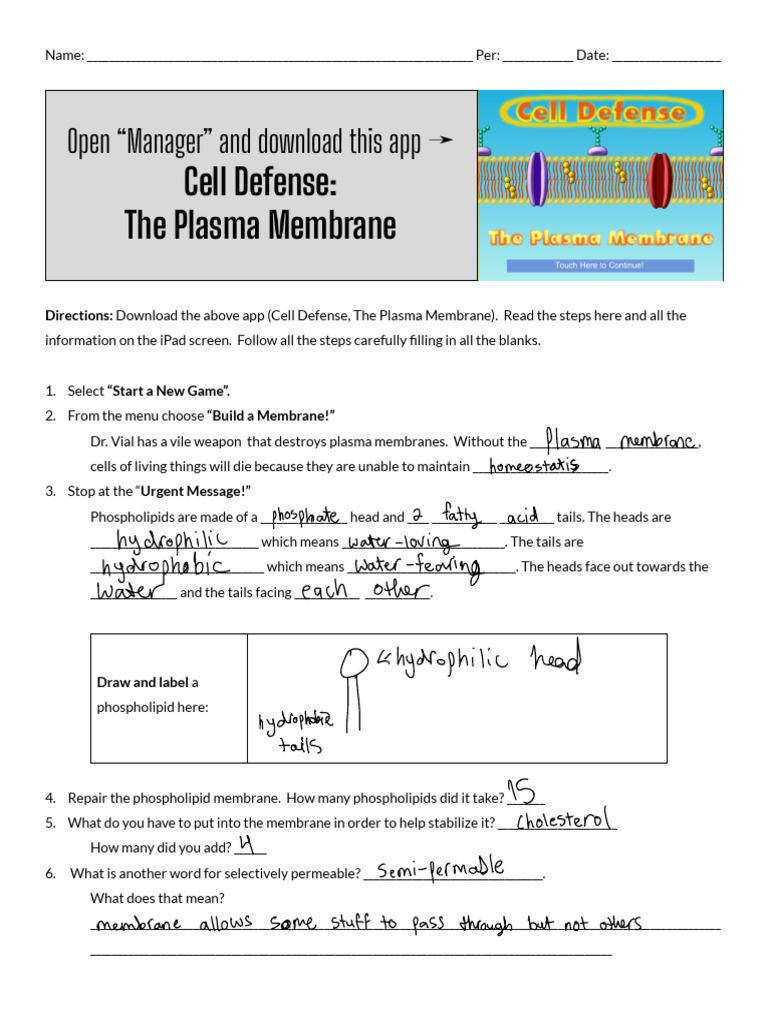 Name: ______________________ Per: __________ Date: ________________
Open “Manager” and download this app →
Cell Defense:
The Plasma Membrane
Cell Defense
The Plasma Membrane
Touch Here to Continue!
Directions: Download the above app (Cell Defense, The Plasma Membrane). Read the steps here and all the
information on the iPad screen. Follow all the steps carefully filling in all the blanks.
1. Select “Start a New Game”.
2. From the menu choose “Build a Membrane!”
Dr. Vial has a vile weapon that destroys plasma membranes. Without the plasma membrane,
cells of living things will die because they are unable to maintain homeostatis.
3. Stop at the “Urgent Message!”
Phospholipids are made of a phosphate head and 2 fatty acid tails. The heads are
hydrophilic which means water-loving. The tails are
hydrophobic which means water-fearing. The heads face out towards the
water and the tails facing each other.
Draw and label a
phospholipid here:
hydrophilic head
hydrophobic
tails
4. Repair the phospholipid membrane. How many phospholipids did it take? 15
5. What do you have to put into the membrane in order to help stabilize it? cholesterol
How many did you add? 4
6. What is another word for selectively permeable? Semi-permable.
What does that mean?
membrane allows some stuff to pass through but not others